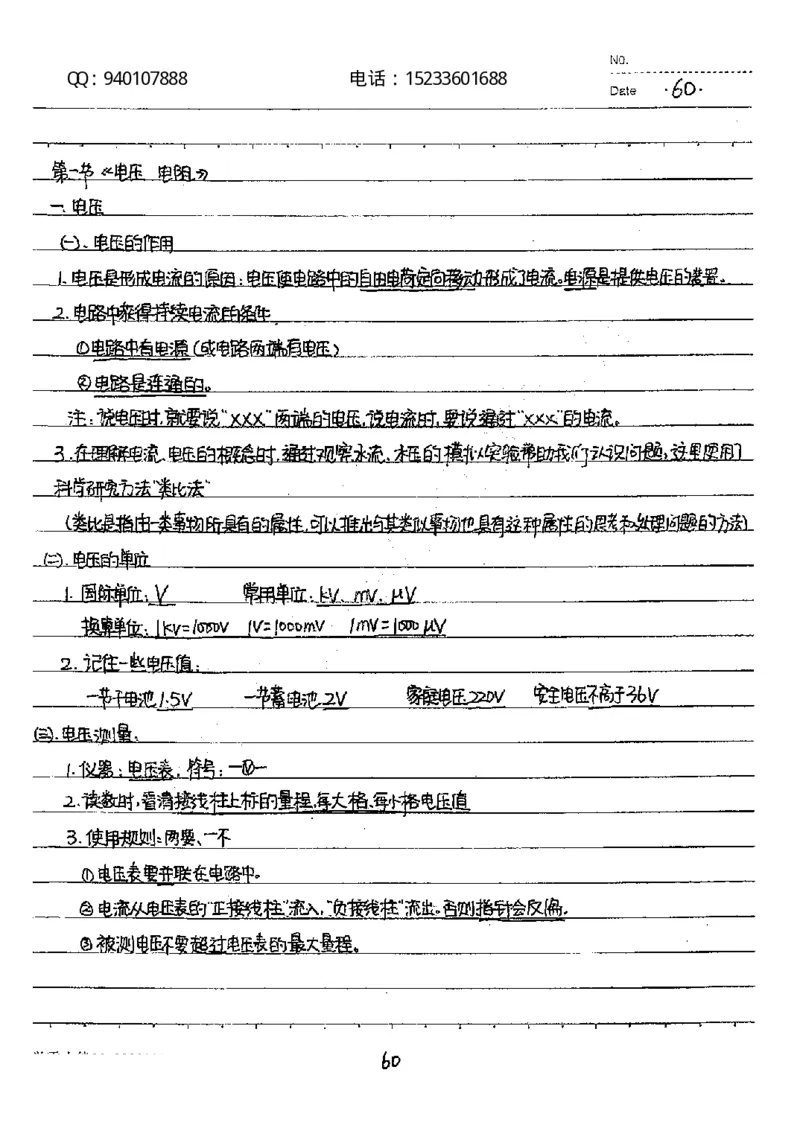 QQ：940107888 电话：15233601688
No.
Date ·60·
第一节《电压 电阻》
一、电压
(一)、电压的作用
1.电压是形成电流的原因：电压使电路中的自由电荷定向移动形成了电流。电源是提供电压的装置。
2.电路中获得持续电流的条件
①电路中有电源（或电路两端有电压）
②电路是连通的。
注：说电压时，就要说“XXX”两端的电压，说电流时，要说通过“XXX”的电流。
3.在理解电流、电压的概念时，通过观察水流、水压的模拟实验帮助我们认识问题，这里使用了
科学研究方法“类比法”
（类比是指由一类事物所具有的属性，可以推出与其类似事物也具有这种属性的思考和处理问题的方法）
(二)、电压的单位
1. 国际单位：V 常用单位：kV、mV、μV
换算单位：1kV=1000V 1V=1000mV 1mV=1000μV
2. 记住一些电压值：
一节干电池1.5V 一节蓄电池2V 家庭电压220V 安全电压不高于36V
(三)、电压测量、
1.仪器：电压表，符号：—Ⓥ—
2.读数时，看清接线柱上标的量程，每大格、每小格电压值
3.使用规则：两要、一不
①电压表要并联在电路中。
②电流从电压表的“正接线柱”流入，“负接线柱”流出。否则指针会反偏。
③被测电压不要超过电压表的最大量程。
60